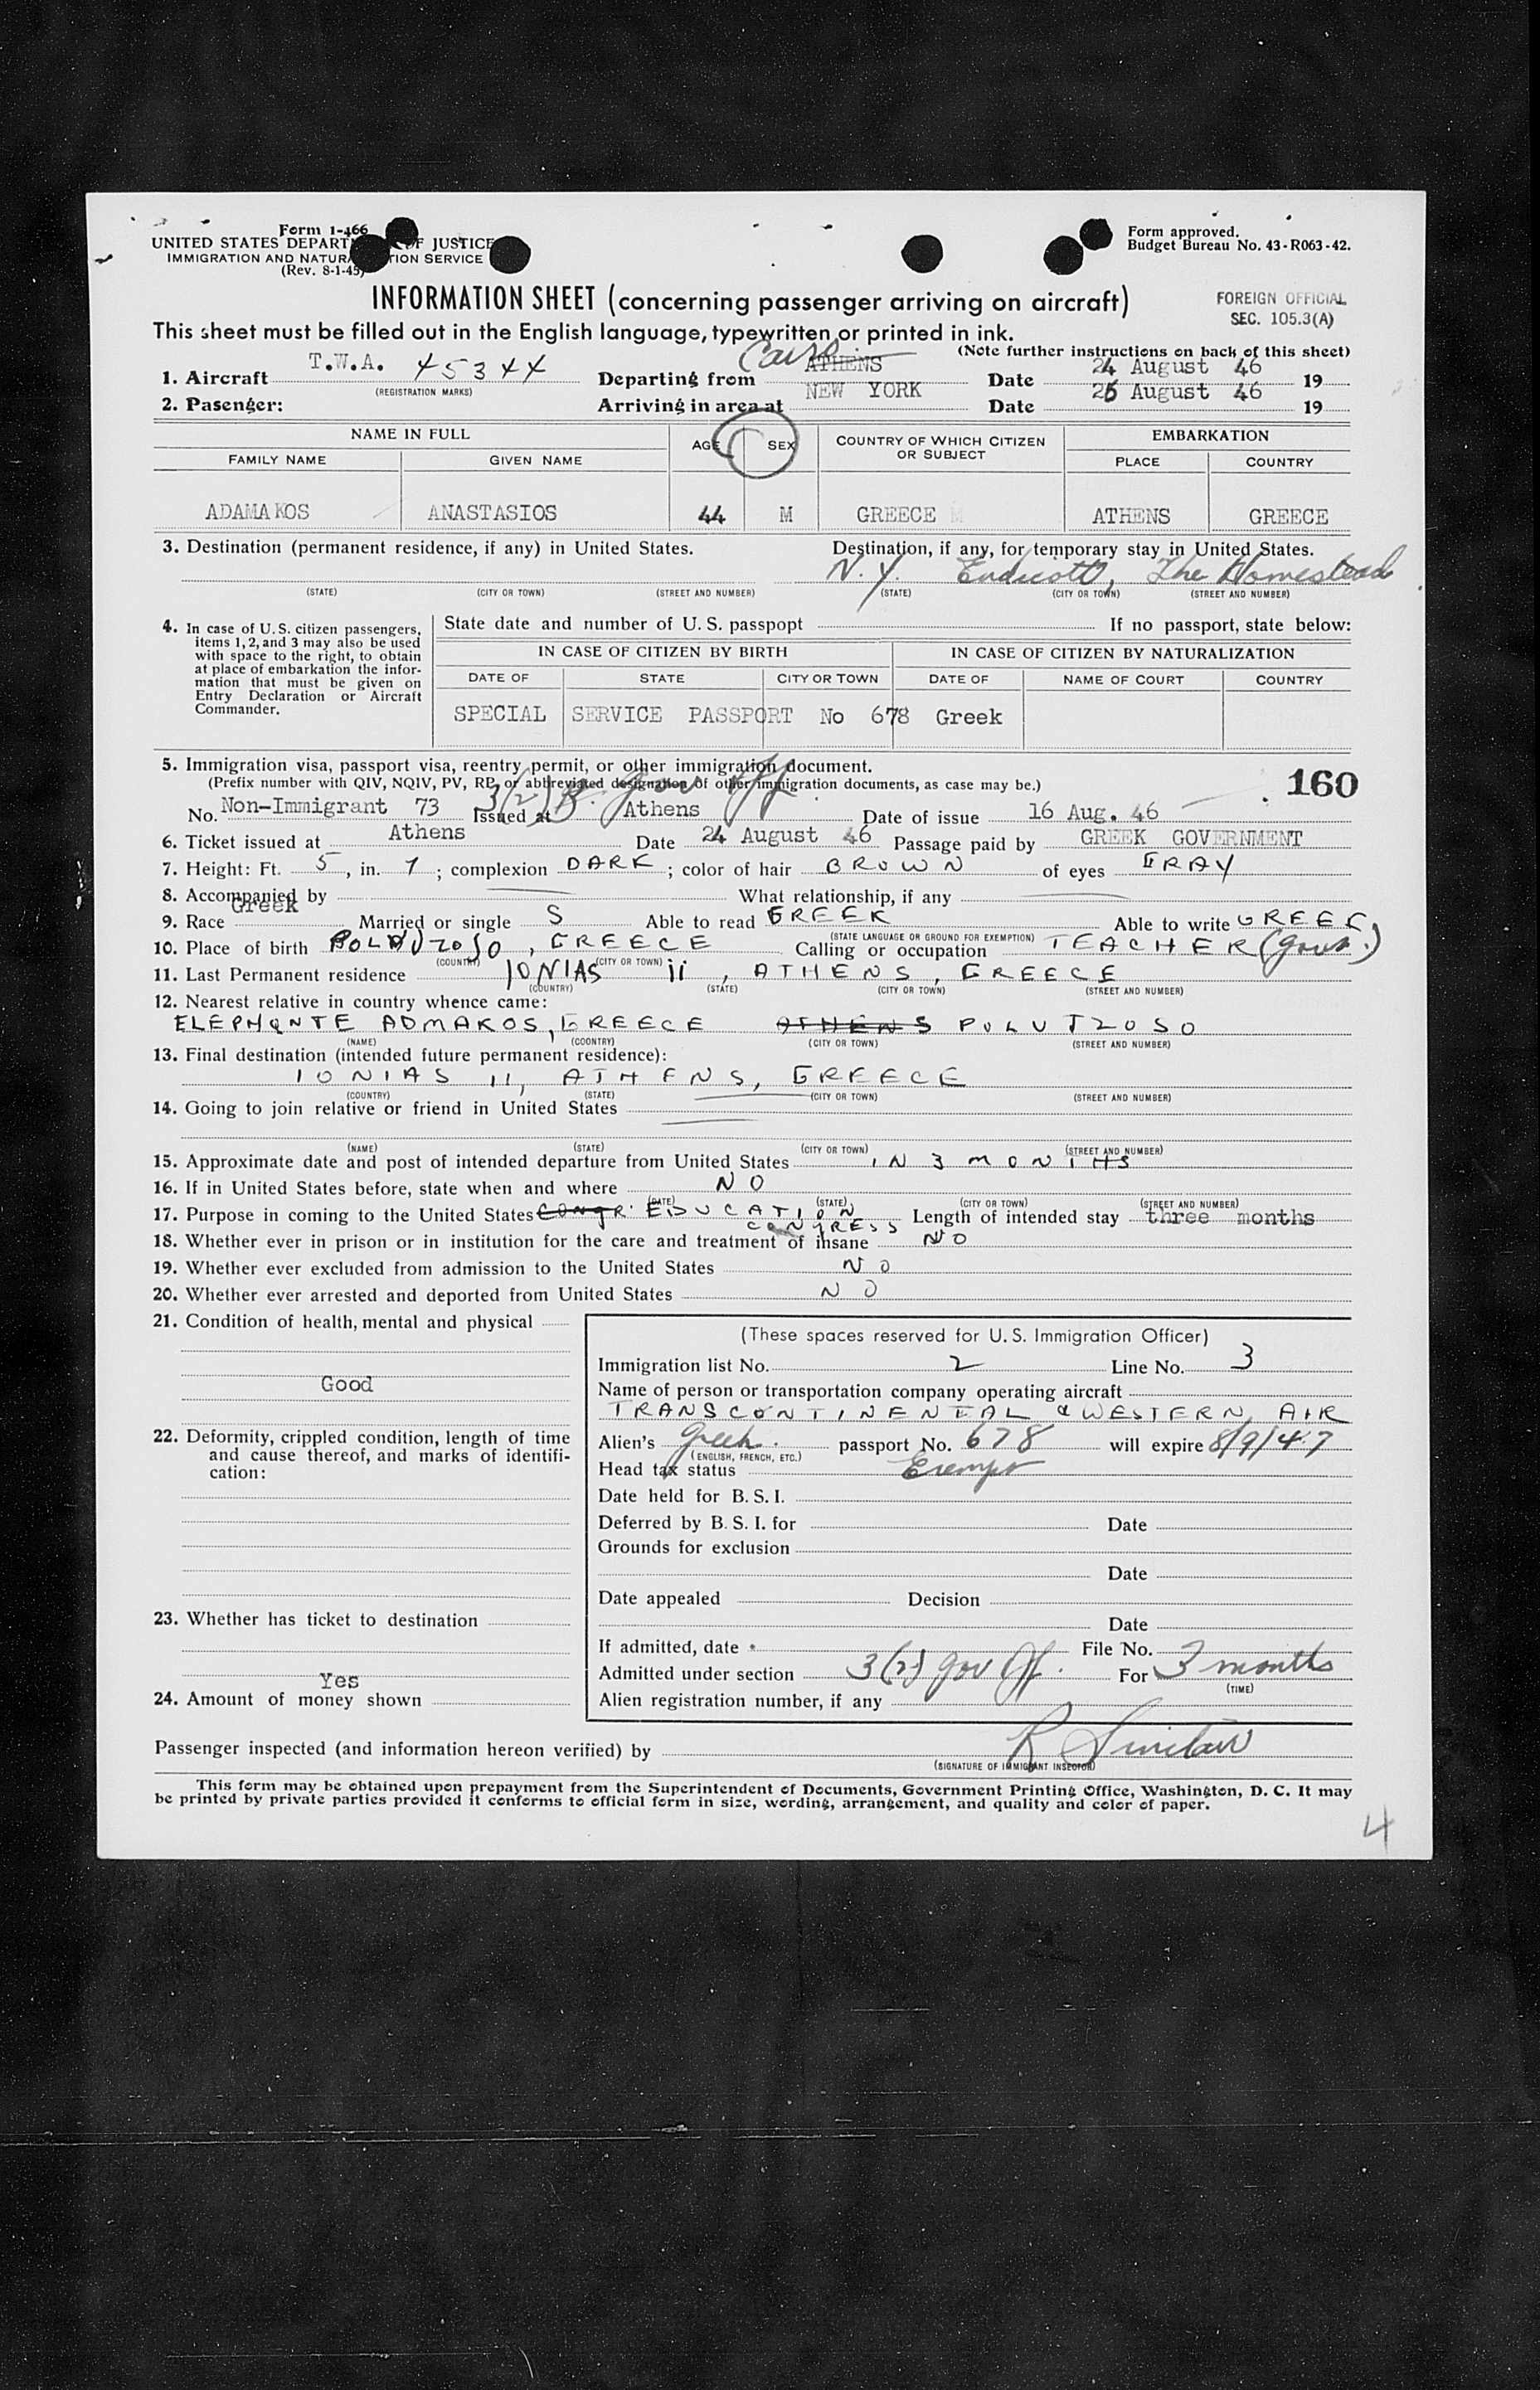 Form 1-466
UNITED STATES DEPARTMENT OF JUSTICE
IMMIGRATION AND NATURALIZATION SERVICE
(Rev. 8-1-45)
Form approved.
Budget Bureau No. 43-R063-42.
INFORMATION SHEET (concerning passenger arriving on aircraft)
FOREIGN OFFICIAL
SEC. 105.3(A)
This sheet must be filled out in the English language, typewritten or printed in ink.
(Note further instructions on back of this sheet)
1. Aircraft T.W.A. 45344 Departing from Cairo ATHENS Date 24 August 46 19
(REGISTRATION MARKS)
2. Pasenger: Arriving in area at NEW YORK Date 26 August 46 19
NAME IN FULL AGE SEX COUNTRY OF WHICH CITIZEN OR SUBJECT EMBARKATION
FAMILY NAME GIVEN NAME PLACE COUNTRY
ADAMAKOS ANASTASIOS 44 M GREECE ATHENS GREECE
3. Destination (permanent residence, if any) in United States. Destination, if any, for temporary stay in United States.
N.Y. Endicott, The Homestead
(STATE) (CITY OR TOWN) (STREET AND NUMBER) (STATE) (CITY OR TOWN) (STREET AND NUMBER)
4. In case of U.S. citizen passengers, items 1, 2, and 3 may also be used with space to the right, to obtain at place of embarkation the information that must be given on Entry Declaration or Aircraft Commander.
State date and number of U.S. passpopt If no passport, state below:
IN CASE OF CITIZEN BY BIRTH IN CASE OF CITIZEN BY NATURALIZATION
DATE OF STATE CITY OR TOWN DATE OF NAME OF COURT COUNTRY
SPECIAL SERVICE PASSPORT No 678 Greek
5. Immigration visa, passport visa, reentry permit, or other immigration document.
(Prefix number with QIV, NQIV, PV, RP, or abbreviated designation of other immigration documents, as case may be.)
160
3(2) gov off
No. Non-Immigrant 73 Issued at Athens Date of issue 16 Aug. 46
6. Ticket issued at Athens Date 24 August 46 Passage paid by GREEK GOVERNMENT
7. Height: Ft. 5, in. 7; complexion DARK; color of hair BROWN of eyes GRAY
8. Accompanied by What relationship, if any
9. Race Greek Married or single S Able to read GREEK Able to write GREEK
(STATE LANGUAGE OR GROUND FOR EXEMPTION)
10. Place of birth , GREECE Calling or occupation TEACHER (Govt.)
(COUNTRY) (CITY OR TOWN)
11. Last Permanent residence IONIAS 11, ATHENS, GREECE
(COUNTRY) (STATE) (CITY OR TOWN) (STREET AND NUMBER)
12. Nearest relative in country whence came:
ELEPHANTE ADMAKOS, GREECE ATHENS POLUTZOSO
(NAME) (COONTRY) (CITY OR TOWN) (STREET AND NUMBER)
13. Final destination (intended future permanent residence):
IONIAS 11, ATHENS, GREECE
(COUNTRY) (STATE) (CITY OR TOWN) (STREET AND NUMBER)
14. Going to join relative or friend in United States
(NAME) (STATE) (CITY OR TOWN) (STREET AND NUMBER)
15. Approximate date and post of intended departure from United States IN 3 MONTHS
16. If in United States before, state when and where NO
(DATE) (STATE) (CITY OR TOWN) (STREET AND NUMBER)
17. Purpose in coming to the United States CONGR. EDUCATION CONGRESS Length of intended stay three months
18. Whether ever in prison or in institution for the care and treatment of insane NO
19. Whether ever excluded from admission to the United States NO
20. Whether ever arrested and deported from United States NO
21. Condition of health, mental and physical
Good
22. Deformity, crippled condition, length of time and cause thereof, and marks of identification:
23. Whether has ticket to destination
Yes
24. Amount of money shown
(These spaces reserved for U.S. Immigration Officer)
Immigration list No. 2 Line No. 3
Name of person or transportation company operating aircraft
TRANSCONTINENTAL & WESTERN AIR
Alien's Greek passport No. 678 will expire 8/9/47
(ENGLISH, FRENCH, ETC.)
Head tax status Exempt
Date held for B.S.I.
Deferred by B.S.I. for Date
Grounds for exclusion
Date
Date appealed Decision
Date
If admitted, date File No.
Admitted under section 3(2) gov Off. For 3 months
(TIME)
Alien registration number, if any
Passenger inspected (and information hereon verified) by R Sinclair
(SIGNATURE OF IMMIGRANT INSECTOR)
This form may be obtained upon prepayment from the Superintendent of Documents, Government Printing Office, Washington, D. C. It may
be printed by private parties provided it conforms to official form in size, wording, arrangement, and quality and color of paper.
4